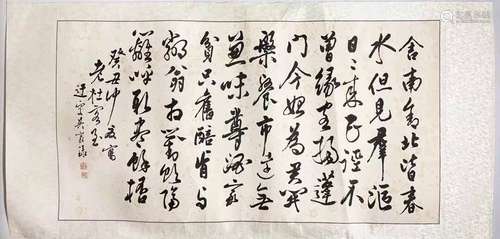 舍南舍北皆春
水但見羣鷗
日々來花徑不
曾緣客掃蓬
門今始為君開
盤飧市遠無
兼味樽酒家
貧只舊醅肯與
鄰翁相對飲隔
籬呼取盡餘杯
癸丑仲夏寫
老杜客至